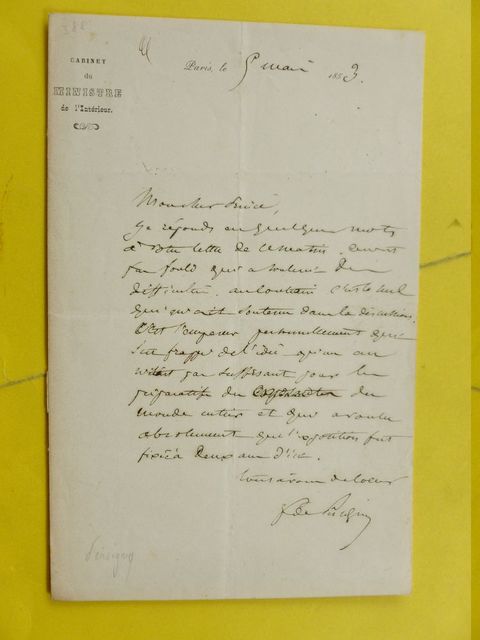 CABINET
du
MINISTRE
de l'Intérieur.
Paris, le 5 mai 1853.
Mon cher
je réponds en quelques mots
à votre lettre de ce matin. ce n'est
pas fould qui a soulevé des
difficultés. au contraire c'est le seul
qui m'ait soutenu dans la discussion.
C'est l'empereur personnellement qui
s'est frappé de l'idée qu'un an
n'était pas suffisant pour les
préparatifs du du
monde entier et qui a voulu
absolument que l'exposition fut
fixée à deux ans d'ici.
Tout à vous de coeur
F de Persigny
Persigny